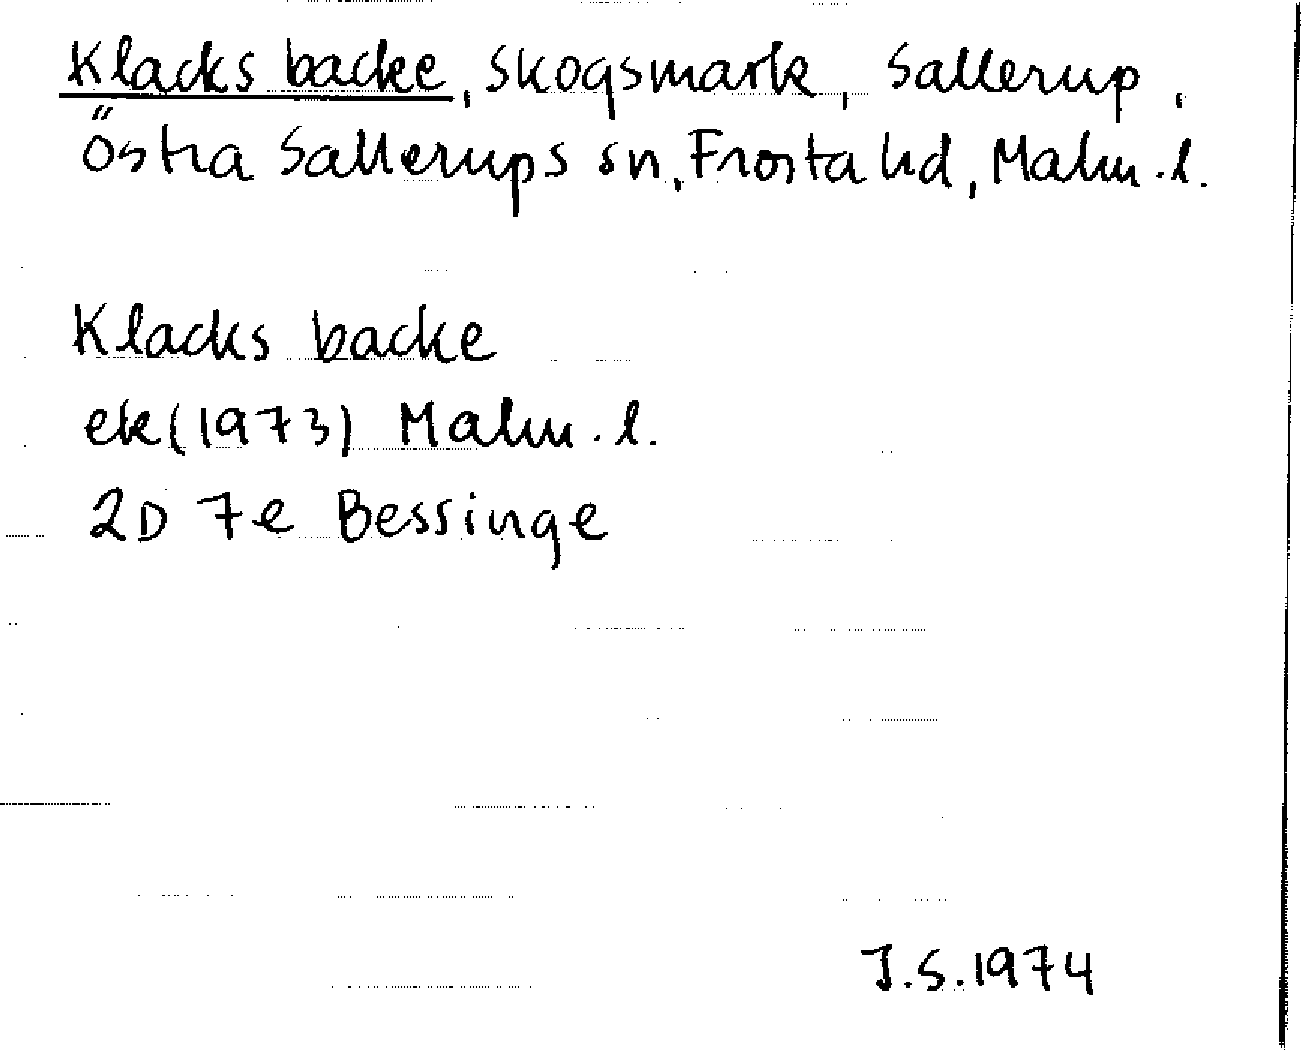 Klacks backe, skogsmark, Sallerup,
Östra Sallerups sn, Frosta hd, Malm.l.
Klacks backe
ek(1973) Malm.l.
2D 7e Bessinge
J.S.1974